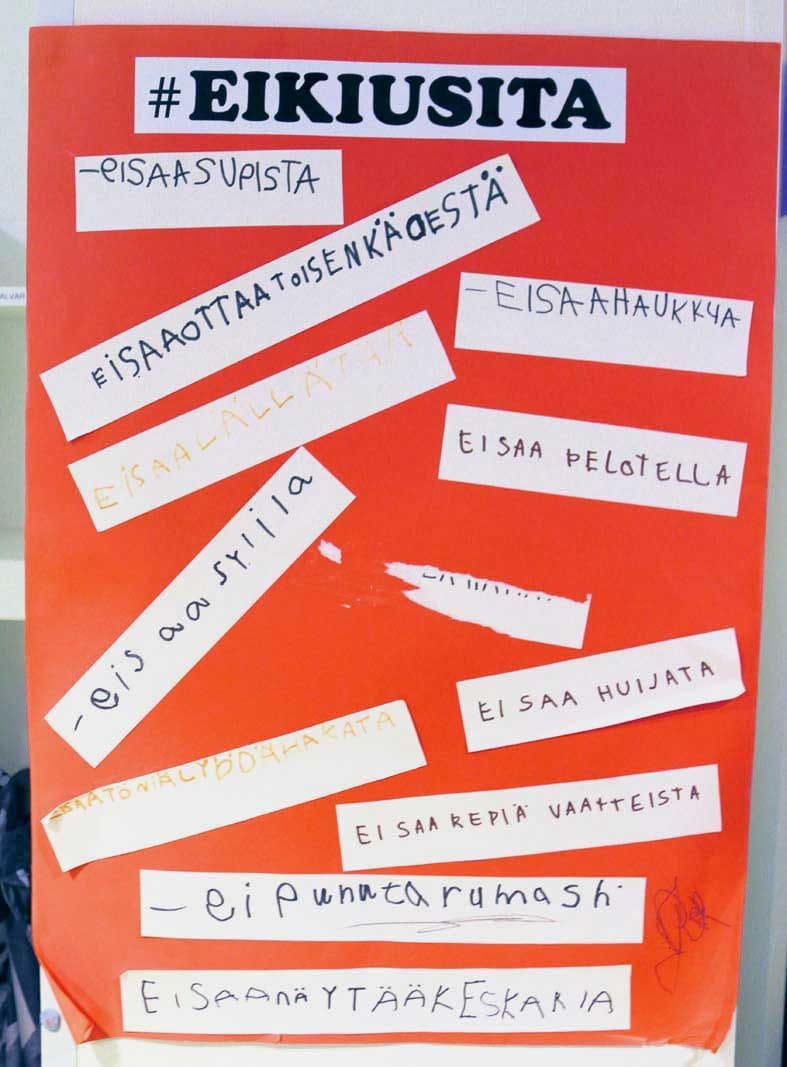 #EIKIUSITA
-eISAASUPISTA
EISAAOTTAATOISENKÄDESTÄ
-EISAAHAUKKUA
EISAALÄLLÄTÄÄ
EISAA PELOTELLA
-eisaasyljla
EI SAA HUIJATA
EI SAA REPIÄ VAATTEISTA
-eipunutarumasti
EISAANÄYTÄÄKESKARIA